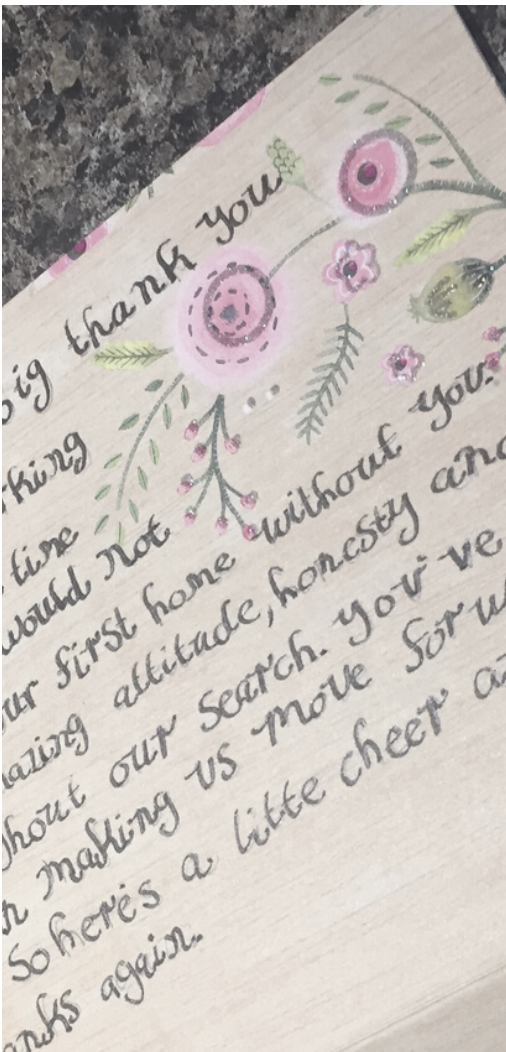 big thank you
rking
time
would not
our first home without you.
mazing attitude, honesty and
hout our search. You've
n making us move forw
So here's a litte cheer a
anks again.